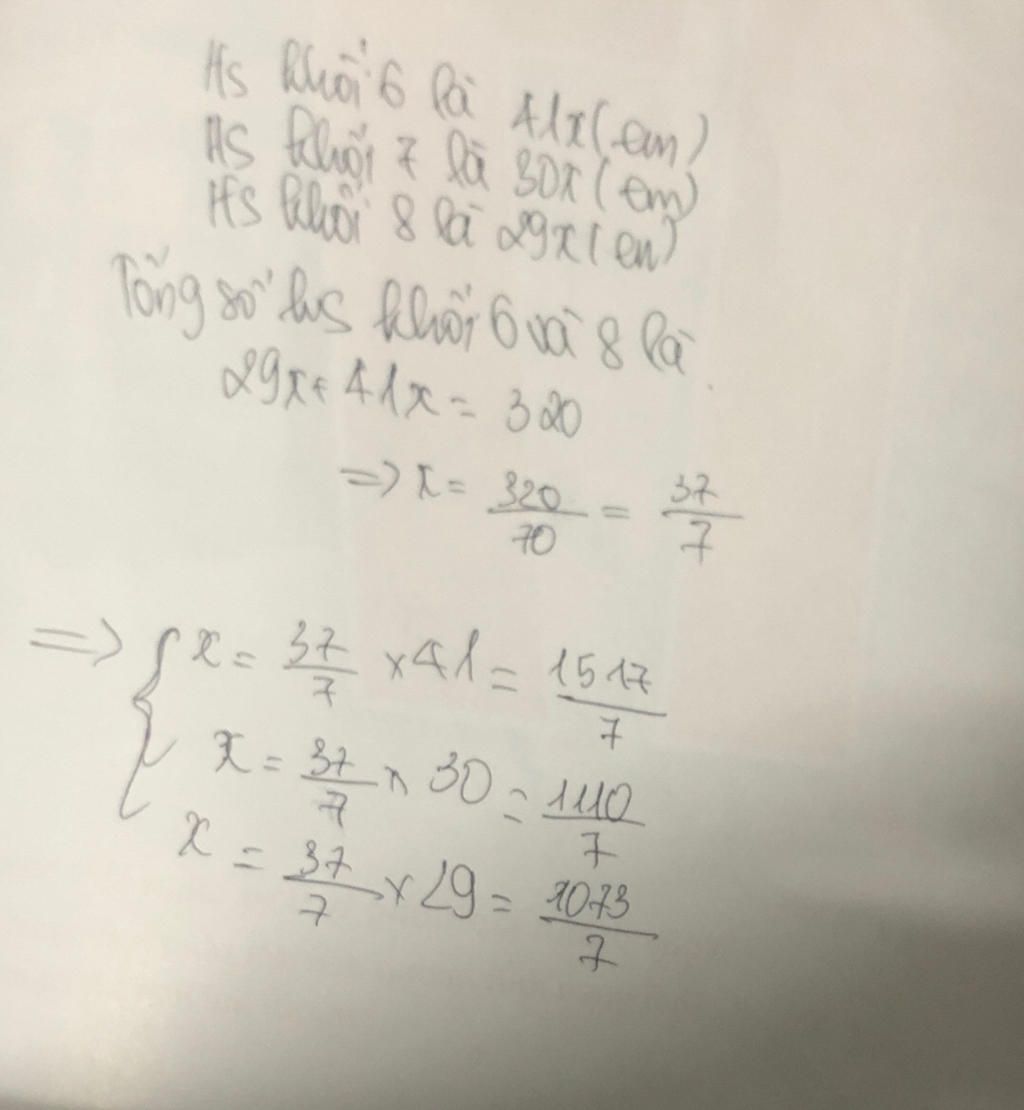 HS khối 6 là 41x (em)
HS khối 7 là 30x (em)
HS khối 8 là 29x (em)
Tổng số hs khối 6 và 8 là
29x + 41x = 320
=> x = 320/70 = 37/7
=> { x = 37/7 x 41 = 1517/7
x = 37/7 x 30 = 1110/7
x = 37/7 x 29 = 1073/7